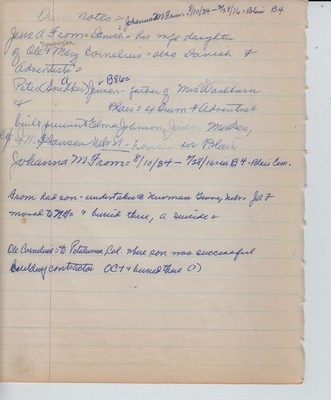 Our notes = Johanna M From: 8/10/34 - 7/28/16: Blair B4
Jens A From = Danish = his wife daughter
Norwegian
of Ole & Mary Cornelius = also Danish &
Adventists =
B862
Peter A Smoker Jensen - father of Mrs Washburn
& Blair = & Gram & Adventist
built present Elma Johnson, Judy
I M Hansen Nebr St - home in Blair
Johanna M From = 8/10/34 - 7/28/16 in B4 - Blair Cem.
From had son = undertaker @ Newman Grove, Nebr JAF
moved to & buried there, a suicide =
Ole Cornelius to Petaluma, Cal. where son was successful
building contractor OC & buried there